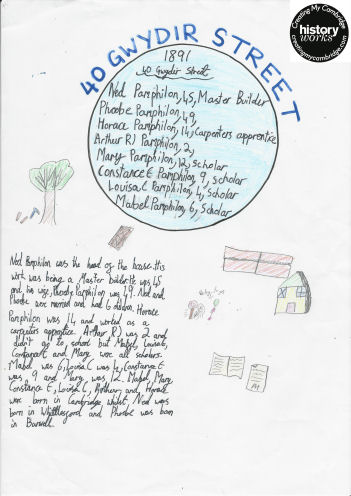 Creating My Cambridge
history
works
creatingmycambridge.com
40 GWYDIR STREET
1891
40 Gwydir Street
Ned Pamphilon, 45, Master Builder
Phoebe Pamphilon, 49,
Horace Pamphilon, 14, Carpenters apprentice
Arthur RJ Pamphilon, 2,
Mary Pamphilon, 12, scholar
Constance E Pamphilon, 9, scholar
Louisa C Pamphilon, 4, scholar
Mabel Pamphilon, 6, Scholar
Ned Pamphilon was the head of the house. His
work was being a Master builder. He was 45
and his wife, Phoebe Pamphilon was 49. Ned and
Phoebe were married and had 6 children. Horace
Pamphilon was 14 and worked as a
carpenters apprentice. Arthur RJ was 2 and
didn't go to school but Mabel, Louisa,
Constance and Mary were all scholars.
Mabel was 6, Louisa C was 4, Constance E
was 9 and Mary was 12. Mabel, Mary
Constance E, Louisa C, Arthur and Horace
were born in Cambridge, whilst Ned was
born in Whittlesford and Phoebe was born
in Barnwell.